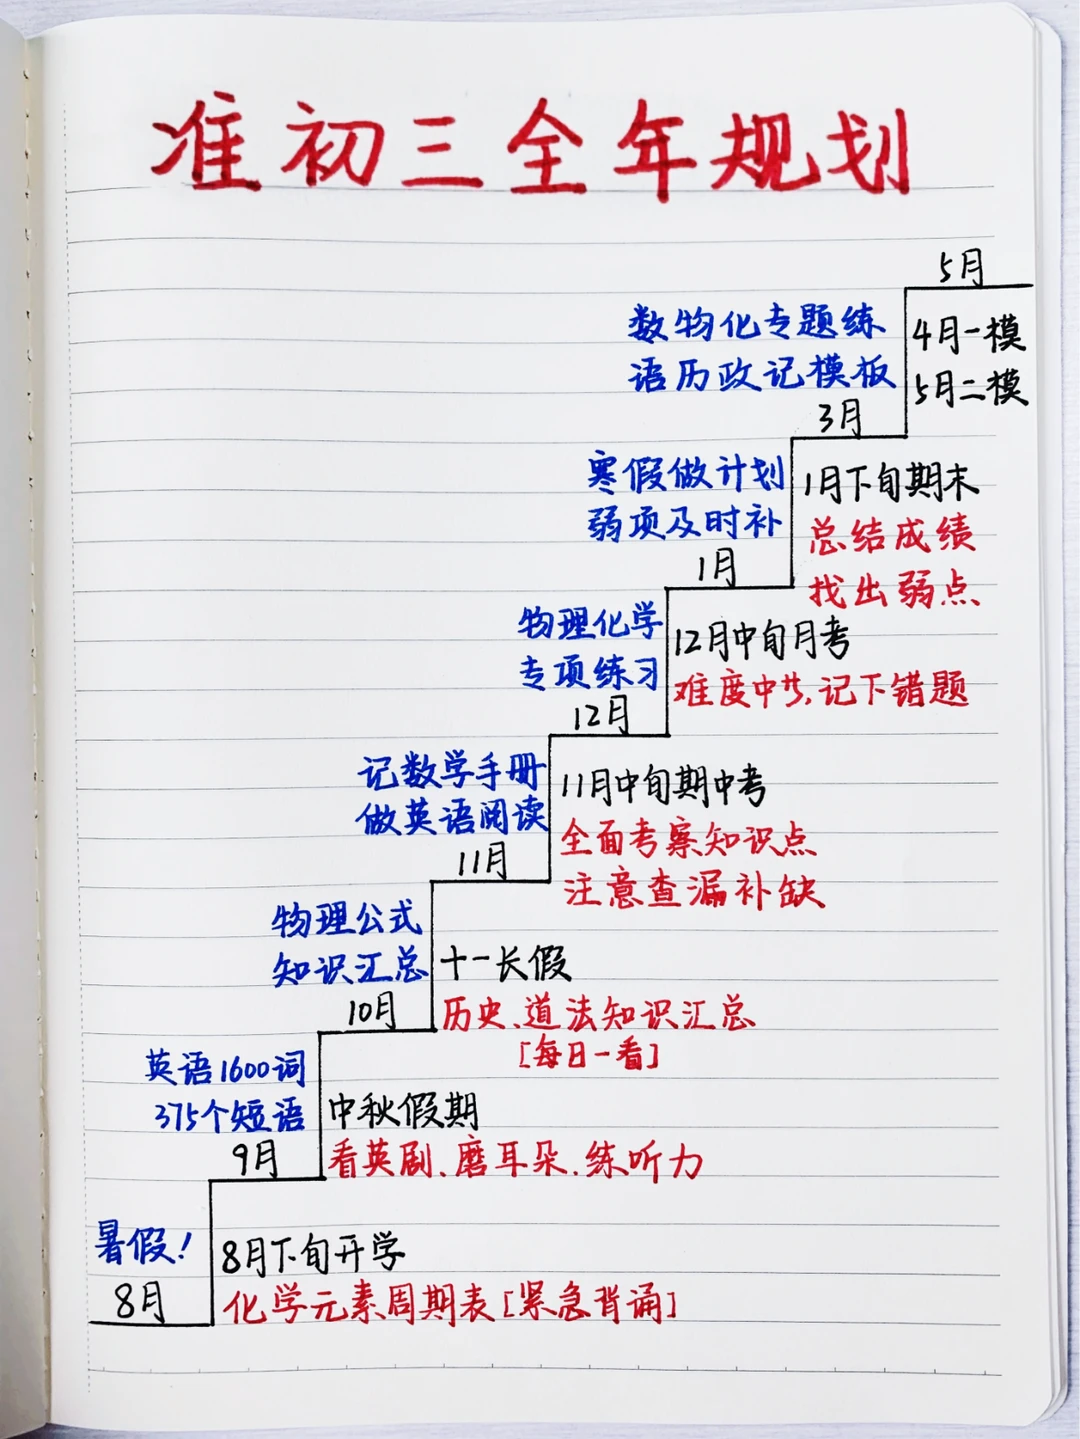 准初三全年规划
5月
数物化专题练
语历政记模板
4月一模
5月二模
3月
寒假做计划
弱项及时补
1月下旬期末
总结成绩
找出弱点
1月
物理化学
专项练习
12月中旬月考
难度中等,记下错题
12月
记数学手册
做英语阅读
11月中旬期中考
全面考察知识点
注意查漏补缺
11月
物理公式
知识汇总
十一长假
历史、道法知识汇总
[每日一看]
10月
英语1600词
375个短语
中秋假期
看英剧、磨耳朵、练听力
9月
暑假!
8月下旬开学
化学元素周期表[紧急背诵]
8月